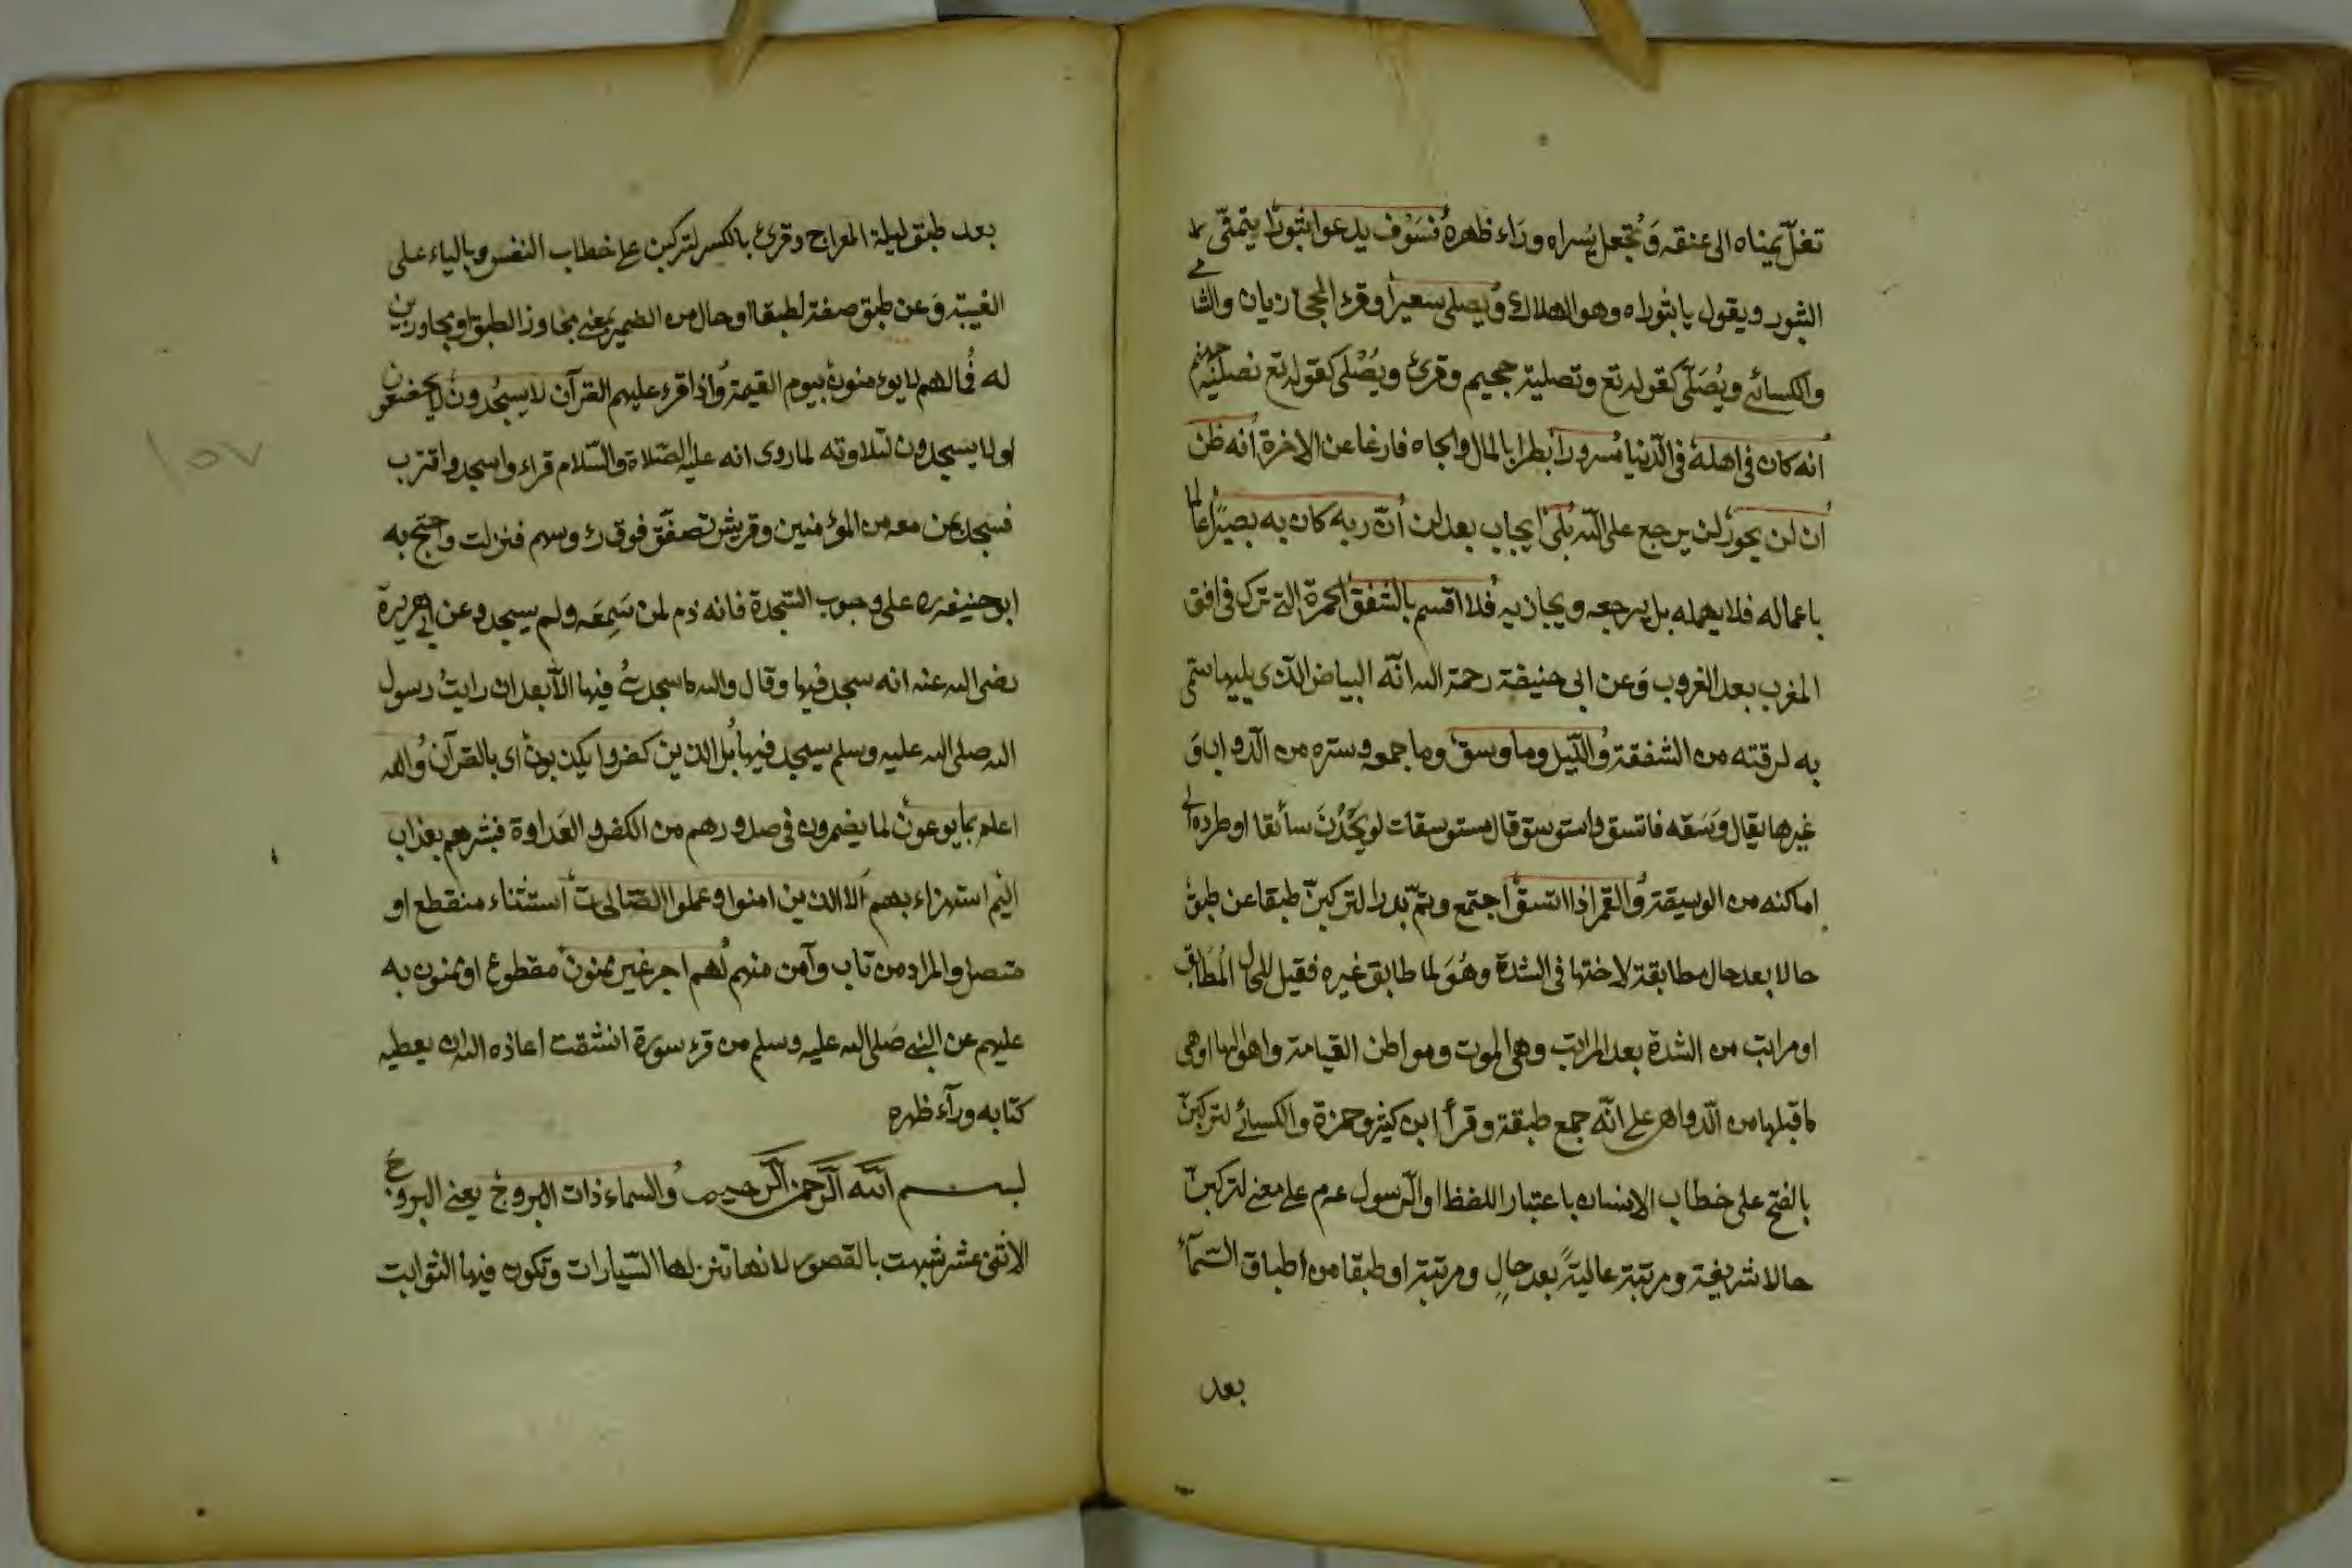 تغلّ يمناه الى عنقه وَتُجعل يُسراه ورَاء ظهره فسَوْف يدعوا ثبورًا يتمنّى
الثبور ويقول يا ثبوراه وهو الهلاك ويصلى سعيرًا وقرء الحجازيان والشا
والكسائى ويُصَلّى كقوله تع وتصلية جحيم وقرئ ويُصْلى كقوله تع نصليه جهنم
انه كان فى اهله فى الدّنيا مسرورًا بطرا بالمال والجاه فارغا عن الاخرة انه ظن
ان لن يحور لن يرجع على الله بلى ايجاب بعد لن انّ ربه كان به بصيرًا عالما
باعماله فلا يهمله بل يرجعه ويجازيه فلا اقسم بالشفق الحمرة التى ترى فى افق
المغرب بعد الغروب وَعن ابى حنيفة رحمة الله انّه البياض الذى يليها سمّى
به لرقته من الشفقة والّليل وما وسق وما جمعه وستره من الدّواب وَ
غيرها يقال وَسَقه فاتسق واستوسق قال مستوسقات لو يَجِدْنَ سائقا او طرده الى
اماكنه من الوسيقة والقمر اذا اتسق اجتمع وتمّ بدرا لتركبنّ طبقا عن طبق
حالا بعد حال مطابقة لاختها فى الشدة وهُوَ لما طابق غيره فقيل للحال المُطَابق
او مراتب من الشدة بعد المراتب وهى الموت ومواطن القيامة واهوالها او هى
ما قبلها من الدّواهى على انّه جمع طبقة وقرأ ابن كثير وحمزة والكسائى لتركبنّ
بالفتح على خطاب الانسان باعتبار اللفظ او الرّسول عم على معنى لتركبنّ
حالا شريفة ومرتبة عاليةً بعد حالٍ ومرتبة او طبقا من اطباق السّمآء
بعد
بعد طبق ليلة المعراج وقرئ بالكسر لتركبن على خطاب النفس وبالياء على
الغيبة وَعن طبق صفة لطبقا او حال من الضمير بمعنى مجاوز الطبق او مجاوزين
له فما لهم لا يؤمنون بيوم القيمة واذا قرء عليهم القرآن لا يسجُدون لا يخضعون
او لا يسجدون لتلاوته لما روى انه عليه الصّلاة والسّلام قراء واسجد واقترب
فسجد بمن معه من المؤمنين وقريش تصفّق فوق رؤوسهم فنزلت واحتج به
ابو حنيفه ره على وجوب السّجدة فانه ذم لمن سَمِعَه ولم يسجد وعن ابى هريرة
رضى الله عنه انه سجد فيها وقال والله ما سجدتُ فيها الّا بعد ان رايتُ رسول
الله صلى الله عليه وسلم يسجد فيها بل الذين كفروا يكذبون اى بالقرآن والله
اعلم بما يوعون لما يضمرون فى صدورهم من الكفر والعَداوة فبشرهم بعذاب
اليم استهزاء بهم الا الذين امنوا وعملوا الصّالحات استثناء منقطع او
متصل والمراد من تاب وآمن منهم لهم اجر غير ممنون مقطوع او ممنون به
عليهم عن النبى صَلى الله عليه وسلم من قرء سورة انشقت اعاذه الله ان يعطيه
كتابه ورآء ظهره
بسم الله الرّحمن الرّحيم والسماء ذات البروج يعنى البروج
الاثنى عشر شبهت بالقصور لانها تنزلها السّيارات وتكون فيها الثوابت
١٥٧